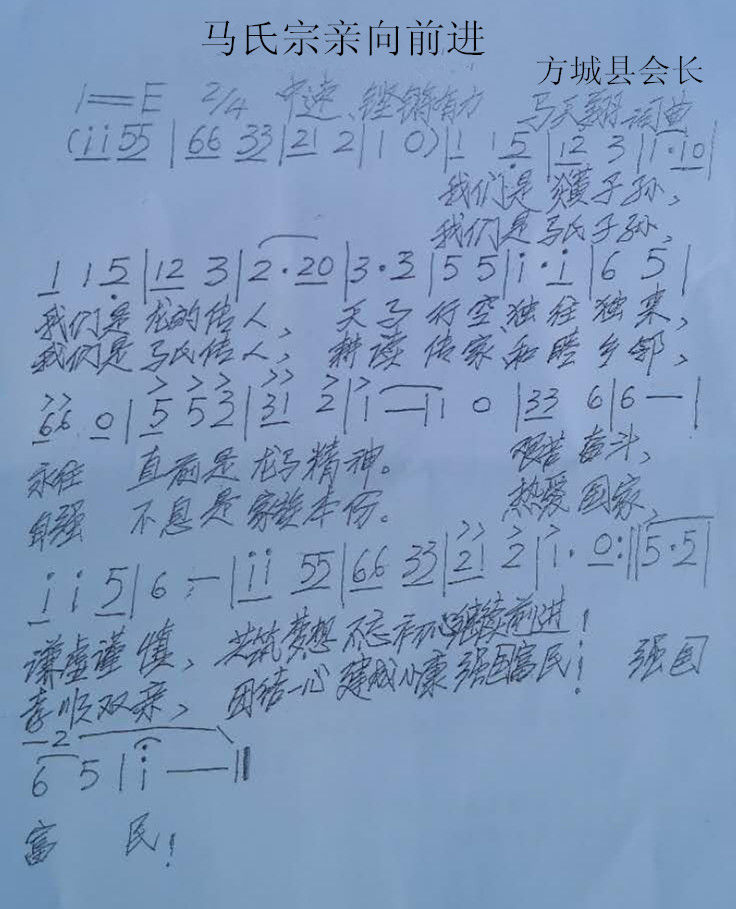 马氏宗亲向前进
方城县会长
1=E 2/4 中速、铿锵有力 马天翔词曲
(i̇i̇ 55 | 66 33 | 21 2 | 1 0) | 1 1 5̣ | 12 3 | 1·10 |
我们是 炎黄子孙、
我们是马氏子孙、
1 1 5̣ | 12 3 | 2·20 | 3·3 | 5 5 | i̇·i̇ | 6 5 |
我们是 龙的传人、 天马 行空 独往 独来、
我们是 马氏传人、 耕读 传家 和睦 乡邻、
66 0 | 5 53 | 31 2 | 1 — | 1 0 | 33 6 | 6 — |
永往 直前是龙马精神。 艰苦奋斗、
自强 不息是家族本份。 热爱国家、
i̇ i̇ 5 | 6 — | i̇i̇ 55 | 66 33 | 21 2 | 1· 0 :|| 5·5 |
谦虚谨慎、 共筑梦想 不忘初心继续前进！
孝顺双亲、 团结一心 建成小康 强国富民！ 强国
—2
6 5 | i̇ — ||
富 民！